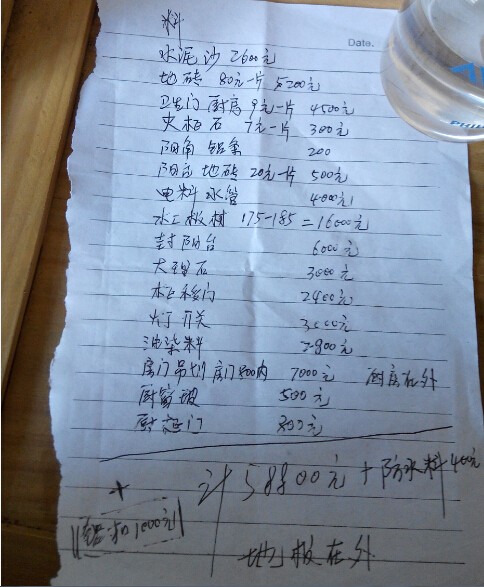 料
Date.
水泥沙 2600元
地砖 80元一片 5200元
卫生门 厨房 9元一片 4500元
火柏石 7元一片 300元
阳角 铝条 200
阳台地砖 20元一片 500元
电料水管 4000元
水工板材 175-185=16000元
封阳台 6000元
大理石 3000元
移门 2400元
灯 开关 3000元
油染料 2800元
房门 房门800内 7000元 厨房在外
厨窗 500元
门 800元
计 58800元+防水料400元
+
1000元
地板在外
PHILIPS